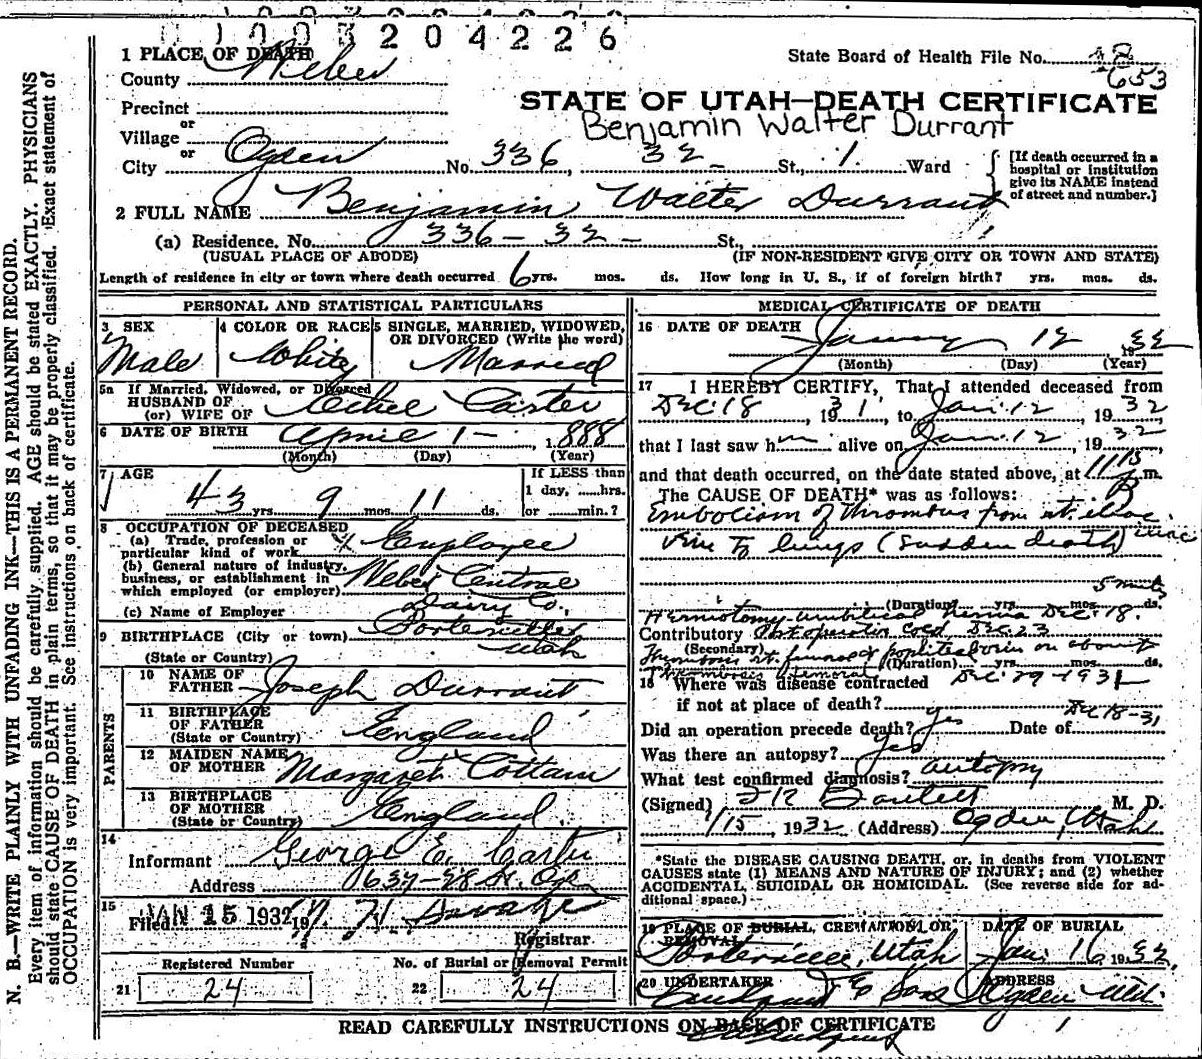 1003204226
1 PLACE OF DEATH
State Board of Health File No. 48
653
County Weber
STATE OF UTAH—DEATH CERTIFICATE
Precinct
or
Benjamin Walter Durrant
Village
or
City Ogden No. 336, 32 - St., 1. Ward
[If death occurred in a hospital or institution give its NAME instead of street and number.]
2 FULL NAME Benjamin Walter Durrant
(a) Residence. No. 336 - 32 - St.,
(USUAL PLACE OF ABODE) (IF NON-RESIDENT GIVE CITY OR TOWN AND STATE)
Length of residence in city or town where death occurred 6 yrs. mos. ds. How long in U. S., if of foreign birth? yrs. mos. ds.
PERSONAL AND STATISTICAL PARTICULARS
3 SEX
Male
4 COLOR OR RACE
White
5 SINGLE, MARRIED, WIDOWED, OR DIVORCED (Write the word)
Married
5a If Married, Widowed, or Divorced
HUSBAND OF
(or) WIFE OF Ethel Carter
6 DATE OF BIRTH April 1 - , 1888
(Month) (Day) (Year)
7 AGE
43 yrs. 9 mos. 11 ds.
If LESS than
1 day, ......hrs.
or ...... min.?
8 OCCUPATION OF DECEASED
(a) Trade, profession or
particular kind of work Employee
(b) General nature of industry,
business, or establishment in
which employed (or employer) Weber Central
Dairy Co.,
(c) Name of Employer
9 BIRTHPLACE (City or town) Porterville
(State or Country) Utah
PARENTS
10 NAME OF
FATHER Joseph Durrant
11 BIRTHPLACE
OF FATHER
(State or Country) England
12 MAIDEN NAME
OF MOTHER Margaret Cottam
13 BIRTHPLACE
OF MOTHER
(State or Country) England.
14
Informant George E. Carter
Address 637-28 St. Og
15
Filed JAN 15 1932 19
Registrar
Registered Number
21 24
No. of Burial or Removal Permit
22 24
MEDICAL CERTIFICATE OF DEATH
16 DATE OF DEATH January 12 1932
(Month) (Day) (Year)
17 I HEREBY CERTIFY, That I attended deceased from
Dec. 18 1931, to Jan. 12, 1932
that I last saw him alive on Jan. 12, 1932
and that death occurred, on the date stated above, at 11/15 P m.
The CAUSE OF DEATH* was as follows:
Embolism of thrombus from rt. iliac
iliac
vein to lungs (sudden death)
5 mins
(Duration) yrs. mos. ds.
Herniotomy - umbilical hernia Dec. 18.
Contributory Post operative cold, Dec 23
(Secondary)
Thrombosis rt. femoral & popliteal vein on about
(Duration) yrs. mos. ds.
thrombosis femoral
Dec. 29 - 1931
18 Where was disease contracted
if not at place of death?
Did an operation precede death? yes Date of Dec 18-31
Was there an autopsy? yes
What test confirmed diagnosis? autopsy
(Signed) Bartlett M. D.
1/15, 1932 (Address) Ogden, Utah
*State the DISEASE CAUSING DEATH, or, in deaths from VIOLENT CAUSES state (1) MEANS AND NATURE OF INJURY; and (2) whether ACCIDENTAL, SUICIDAL OR HOMICIDAL. (See reverse side for additional space.)
19 PLACE OF BURIAL, CREMATION OR REMOVAL
Porterville, Utah
DATE OF BURIAL
Jan. 16 1932.
20 UNDERTAKER
Lindquist & Sons
ADDRESS
Ogden Utd.
READ CAREFULLY INSTRUCTIONS ON BACK OF CERTIFICATE
N. B.—WRITE PLAINLY WITH UNFADING INK—THIS IS A PERMANENT RECORD.
Every item of information should be carefully supplied. AGE should be stated EXACTLY. PHYSICIANS
should state CAUSE OF DEATH in plain terms, so that it may be properly classified. Exact statement of
OCCUPATION is very important. See instructions on back of certificate.